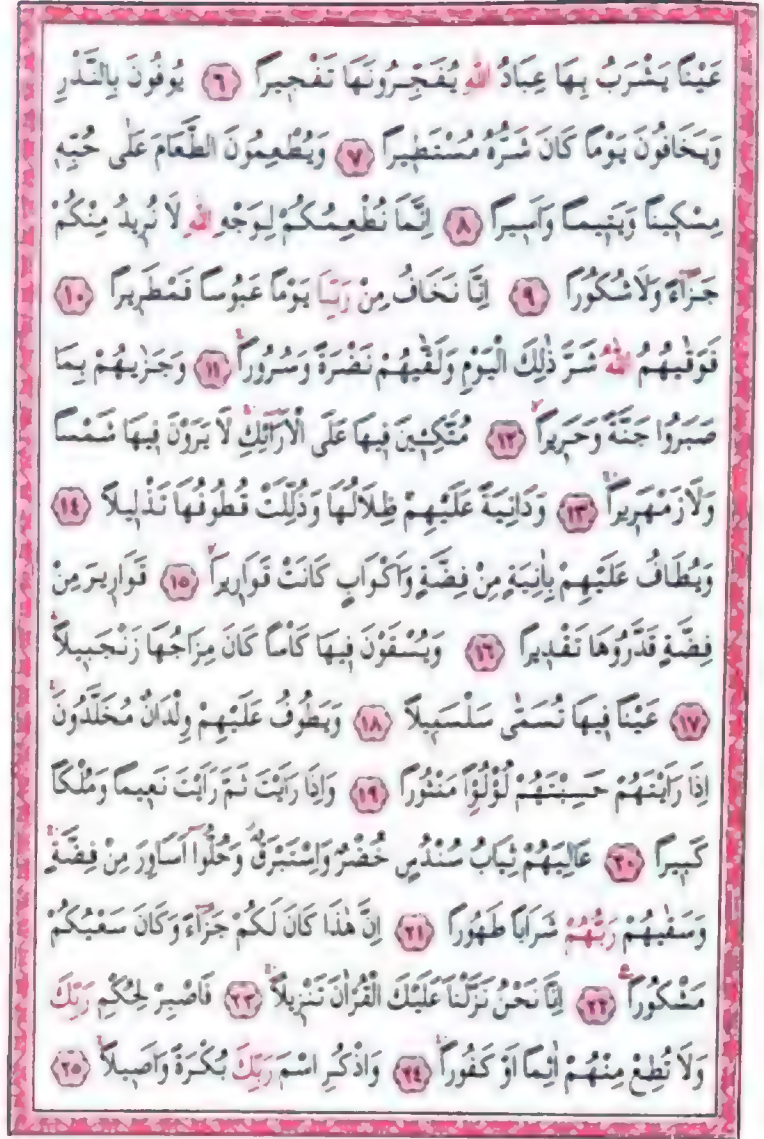 عَيْناً يَشْرَبُ بِهَا عِبَادُ اللّٰهِ يُفَجِّرُونَهَا تَفْجٖيراً ﴿٦﴾ يُوفُونَ بِالنَّذْرِ
وَيَخَافُونَ يَوْماً كَانَ شَرُّهُ مُسْتَطٖيراً ﴿٧﴾ وَيُطْعِمُونَ الطَّعَامَ عَلٰى حُبِّهٖ
مِسْكٖيناً وَيَتٖيماً وَاَسٖيراً ﴿٨﴾ اِنَّمَا نُطْعِمُكُمْ لِوَجْهِ اللّٰهِ لَا نُرٖيدُ مِنْكُمْ
جَزَٓاءً وَلَا شُكُوراً ﴿٩﴾ اِنَّا نَخَافُ مِنْ رَبِّنَا يَوْماً عَبُوساً قَمْطَرٖيراً ﴿١٠﴾
فَوَقٰيهُمُ اللّٰهُ شَرَّ ذٰلِكَ الْيَوْمِ وَلَقّٰيهُمْ نَضْرَةً وَسُرُوراًۚ ﴿١١﴾ وَجَزٰيهُمْ بِمَا
صَبَرُوا جَنَّةً وَحَرٖيراًۙ ﴿١٢﴾ مُتَّكِـٖٔينَ فٖيهَا عَلَى الْاَرَٓائِكِۚ لَا يَرَوْنَ فٖيهَا شَمْساً
وَلَا زَمْهَرٖيراًۚ ﴿١٣﴾ وَدَانِيَةً عَلَيْهِمْ ظِلَالُهَا وَذُلِّلَتْ قُطُوفُهَا تَذْلٖيلاً ﴿١٤﴾
وَيُطَافُ عَلَيْهِمْ بِاٰنِيَةٍ مِنْ فِضَّةٍ وَاَكْوَابٍ كَانَتْ قَوَارٖيرَاۙ ﴿١٥﴾ قَوَارٖيرَ مِنْ
فِضَّةٍ قَدَّرُوهَا تَقْدٖيراً ﴿١٦﴾ وَيُسْقَوْنَ فٖيهَا كَاْساً كَانَ مِزَاجُهَا زَنْجَبٖيلاًۚ
﴿١٧﴾ عَيْناً فٖيهَا تُسَمّٰى سَلْسَبٖيلاً ﴿١٨﴾ وَيَطُوفُ عَلَيْهِمْ وِلْدَانٌ مُخَلَّدُونَۚ
اِذَا رَاَيْتَهُمْ حَسِبْتَهُمْ لُؤْلُؤاً مَنْثُوراً ﴿١٩﴾ وَاِذَا رَاَيْتَ ثَمَّ رَاَيْتَ نَعٖيماً وَمُلْكاً
كَبٖيراً ﴿٢٠﴾ عَالِيَهُمْ ثِيَابُ سُنْدُسٍ خُضْرٌ وَاِسْتَبْرَقٌؗ وَحُلُّٓوا اَسَاوِرَ مِنْ فِضَّةٍۚ
وَسَقٰيهُمْ رَبُّهُمْ شَرَاباً طَهُوراً ﴿٢١﴾ اِنَّ هٰذَا كَانَ لَكُمْ جَزَٓاءً وَكَانَ سَعْيُكُمْ
مَشْكُوراًࣖ ﴿٢٢﴾ اِنَّا نَحْنُ نَزَّلْنَا عَلَيْكَ الْقُرْاٰنَ تَنْزٖيلاًۚ ﴿٢٣﴾ فَاصْبِرْ لِحُكْمِ رَبِّكَ
وَلَا تُطِعْ مِنْهُمْ اٰثِماً اَوْ كَفُوراًۚ ﴿٢٤﴾ وَاذْكُرِ اسْمَ رَبِّكَ بُكْرَةً وَاَصٖيلاًۚ ﴿٢٥﴾